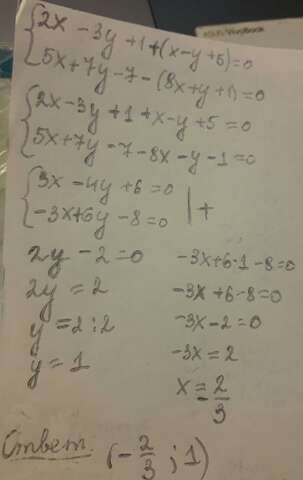 {2x - 3y + 1 + (x - y + 5) = 0
5x + 7y - 7 - (8x + y + 1) = 0
{2x - 3y + 1 + x - y + 5 = 0
5x + 7y - 7 - 8x - y - 1 = 0
{3x - 4y + 6 = 0 | +
-3x + 6y - 8 = 0
2y - 2 = 0
2y = 2
y = 2 : 2
y = 1
-3x + 6·1 - 8 = 0
-3x + 6 - 8 = 0
-3x - 2 = 0
-3x = 2
x = -2/3
Ответ. (-2/3 ; 1)